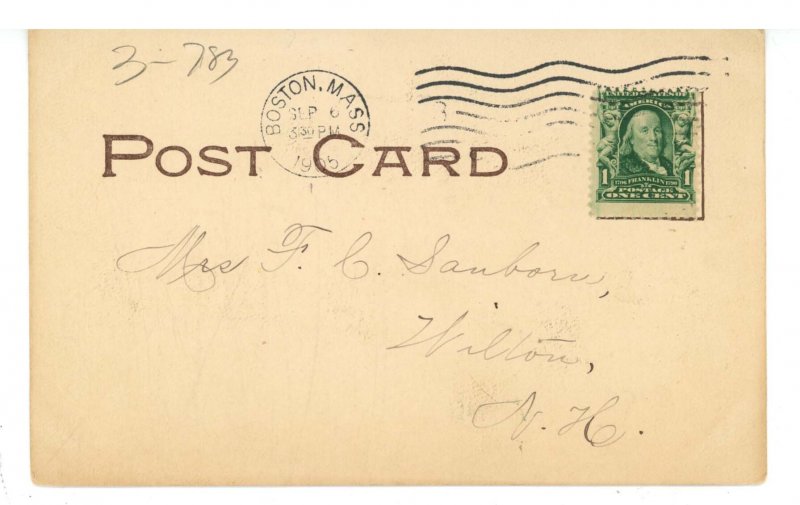 3-783
BOSTON, MASS
SEP 6
3 30 PM
1905
POST CARD
AMERICA
1
1706 FRANKLIN 1790
POSTAGE
ONE CENT
Mrs F. C. Sanborn,
Wilton,
N. H.